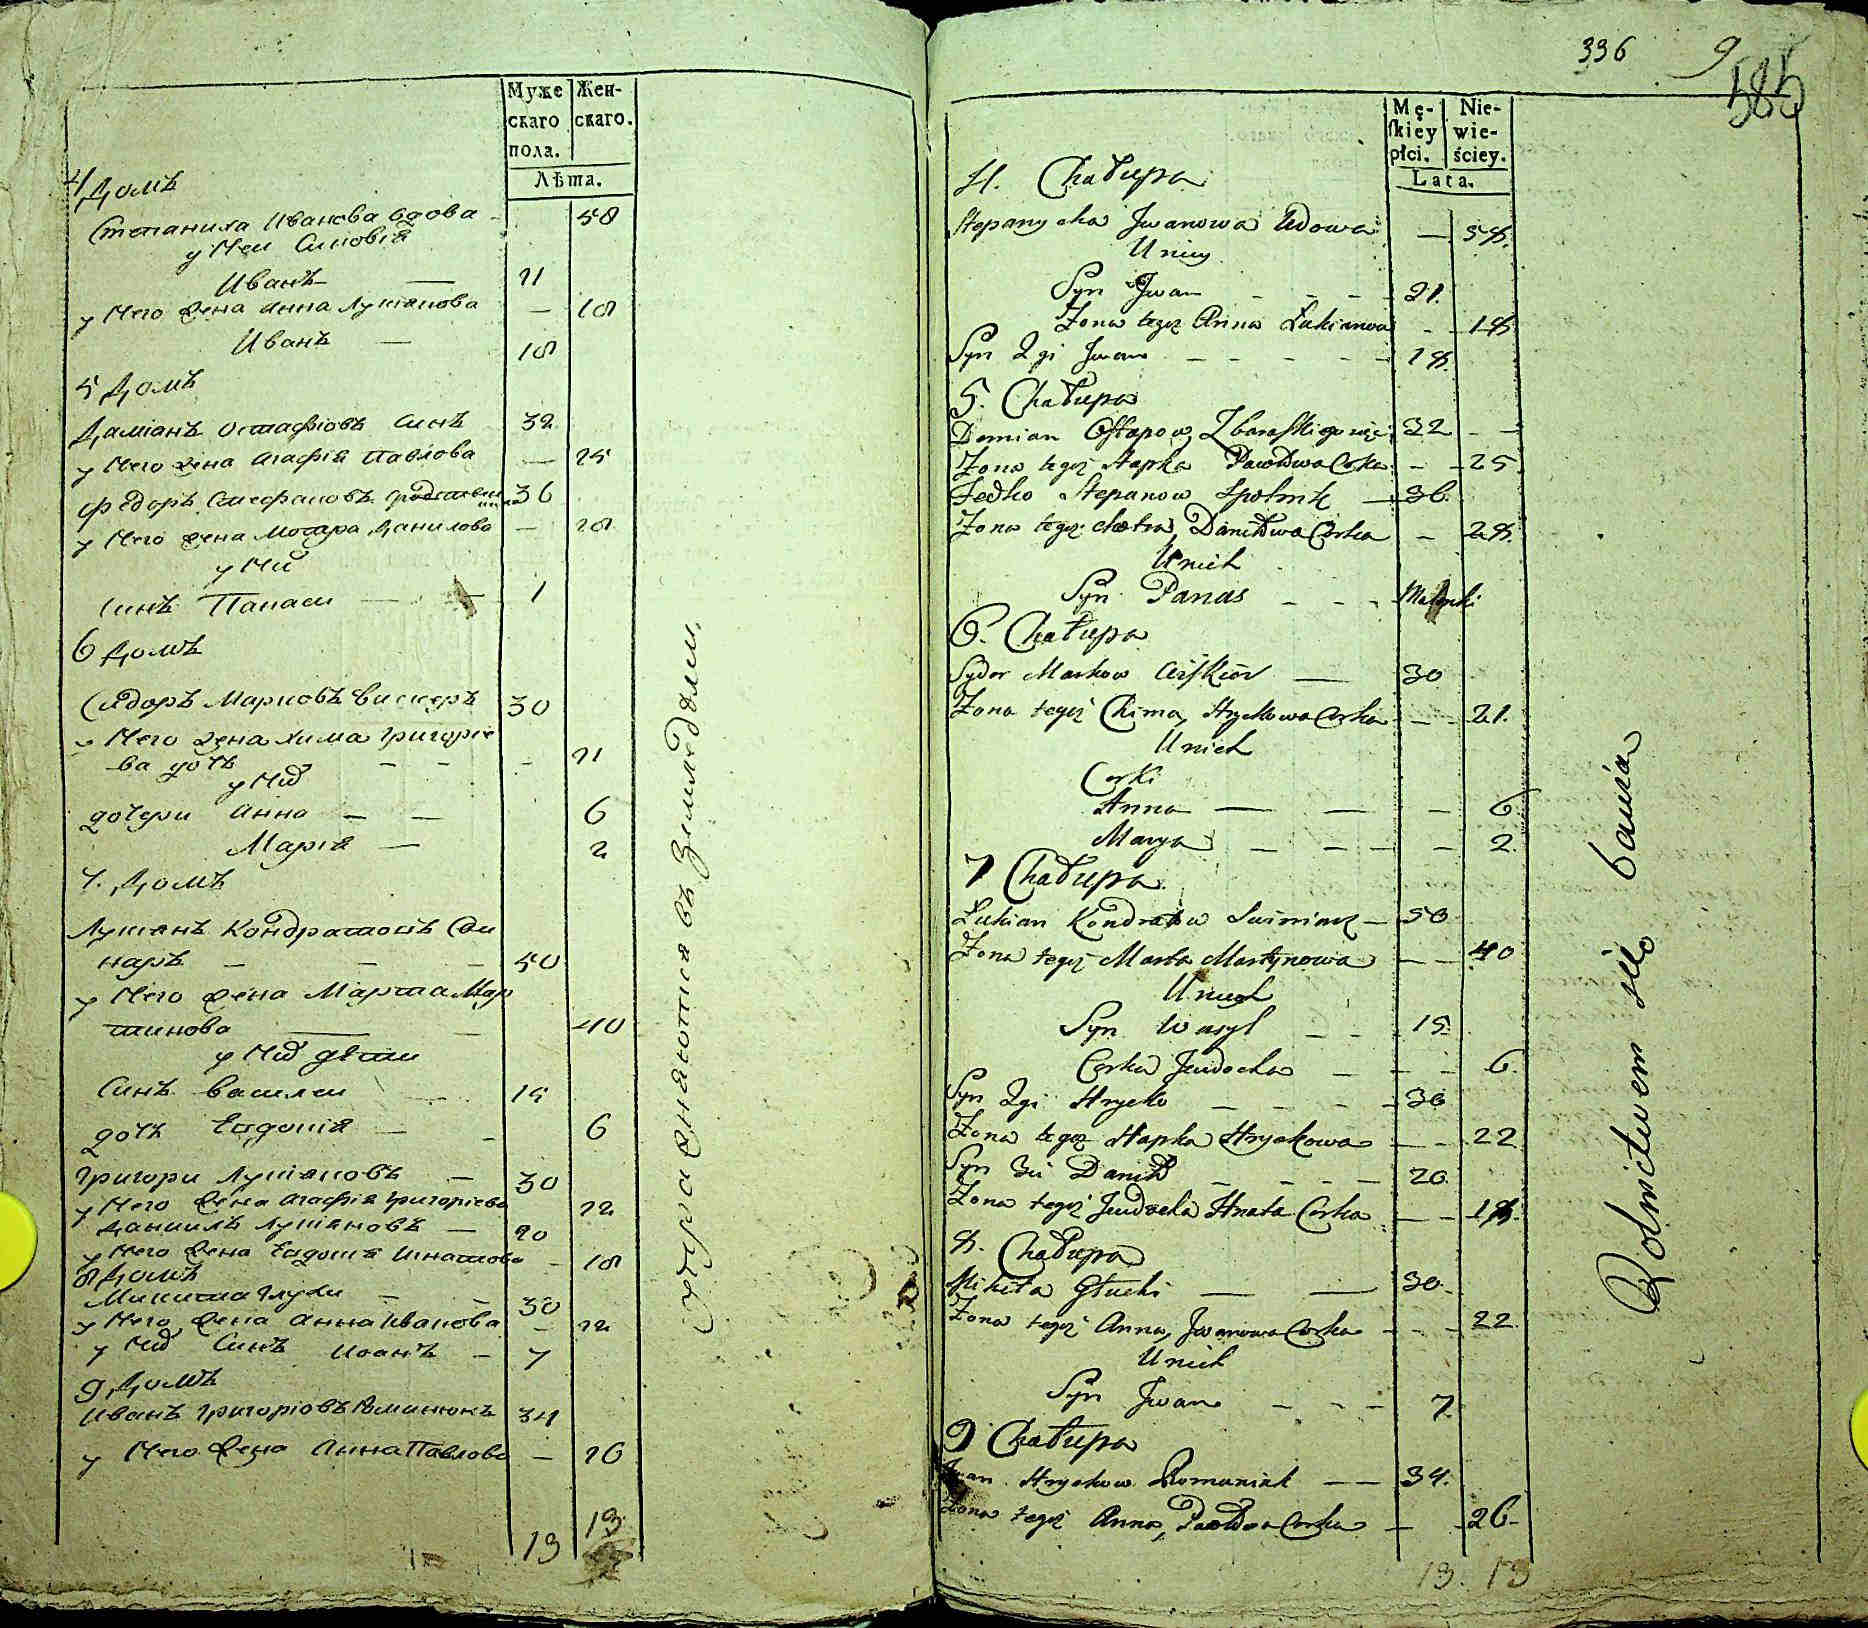 Муже
скаго
пола.
Жен-
скаго.
Лѣта.
4 Домъ
Степаниха Иванова вдова - 58
у Неи Синовія
Иванъ — 21
у Него Жена Анна Лукянова — 18
Иванъ — 18
5 Домъ
Даміанъ Остафіовъ Синъ 32
у Него Жена Агафія Павлова — 25
Федоръ Стефановъ 36
у Него Жена Мотра Данилова — 28
у Них
Синъ Панаси — 1
6 Домъ
Сидоръ Марковъ 30
у Него Жена Хима Григоріе
ва дочь - - - 21
у Них
дочери Анна — — 6
Марія — 2
7. Домъ
Лукіанъ Кондратовъ Сви
наръ — — - 50
у Него Жена Марта Мар
тинова — - 40
у Них дѣти
Синъ Василеи 15
дочь Евдокія — - 6
Григори Лукіановъ — 30
у Него Жена Агафія Григоріева 22
Даниилъ Лукяновъ — 20
у Него Жена Евдокія Игнатова - 18
8 Домъ
Микита Глухи - - 30
у Него Жена Анна Иванова - 22
у Них Синъ Иоанъ — 7
9 Домъ
Иванъ Григоріовъ Романюкъ 34
у Него Жена Анна Павлова — 26
13 13
въ Землѣделіи
336 9
585
Mę-
ſkiey
płci.
Nie-
wie-
ściey.
Lata.
4. Chałupa
Stepanycha Jwanowa Wdowa — 58.
U niey
Syn Jwan - - - - 21.
Żona tegoż Anna Łukianowa - - 18
Syn 2gi Jwan - - - - - 18.
5. Chałupa
Demian Ostapow 32 - -
Żona tegoż Hapka Pawłowa Corka - - 25
Fedko Stepanow Społnik — 36.
Żona tegoż Motra, Daniłowa Corka - 28.
U nich
Syn Panas - - -
6. Chałupa
Sydor Markow — 30
Żona tegoż Chima, Hryckowa Corka - - 21.
U nich
Corki
Anna — — - 6
Marya - - - - 2
7 Chałupa
Łukian Kondratow Swiniarz - 50
Żona tegoż Marta Martynowa - - 40
U nich
Syn Wasyl - - 15.
Corka Jewdocha - - - 6.
Syn 2gi Hrycko - - - - 30
Żona tegoż Hapka Hryckowa - - 22
Syn 3ci Daniło - - - - 20.
Żona tegoż Jewdocha Hnata Corka - - 18.
8. Chałupa
Mikita Głuchi — — 30.
Żona tegoż Anna, Jwanowa Corka - - - 22
U nich
Syn Jwan - - - 7.
9 Chałupa
Jwan Hryckow Romaniuk — — 34.
Żona tegoż Anna, Pawłowa Corka - - 26-
13. 13
Rolnictwem się bawią